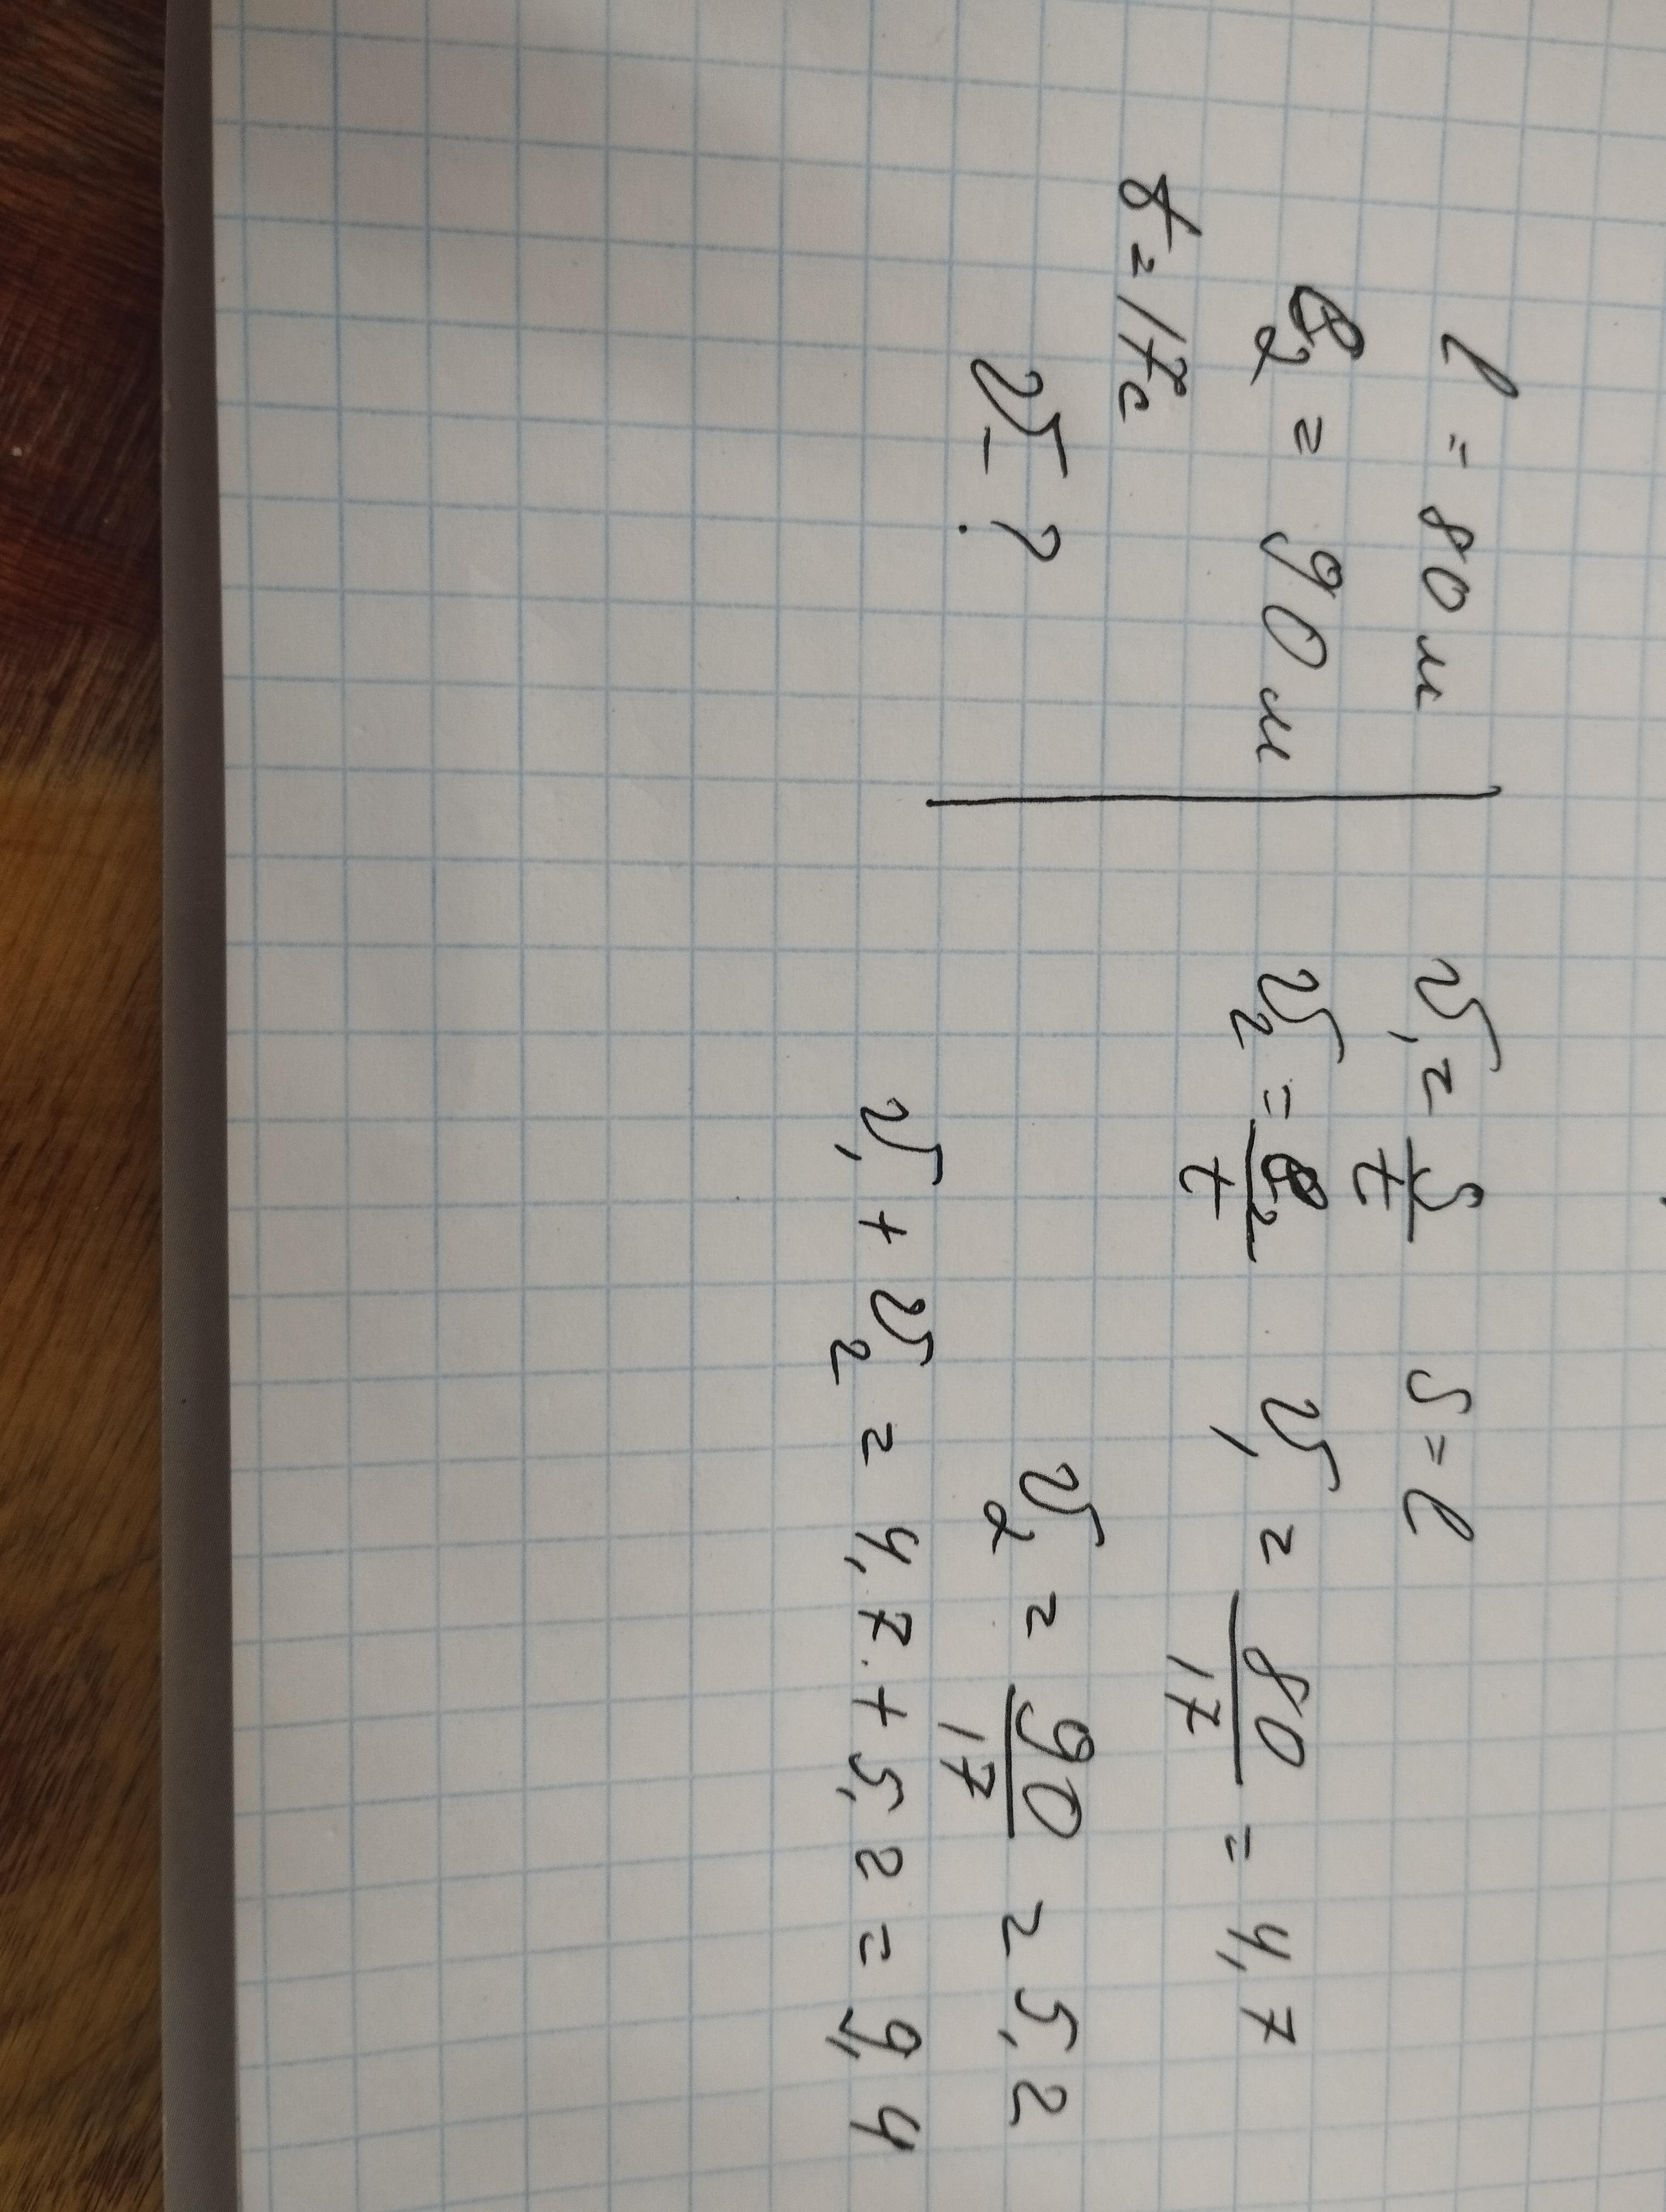 l = 80 м
l₂ = 90 м
t = 17с
v - ?
v₁ = S/t S = l
v₂ = l₂/t v₁ = 80/17 = 4,7
v₂ = 90/17 = 5,2
v₁ + v₂ = 4,7 + 5,2 = 9,4